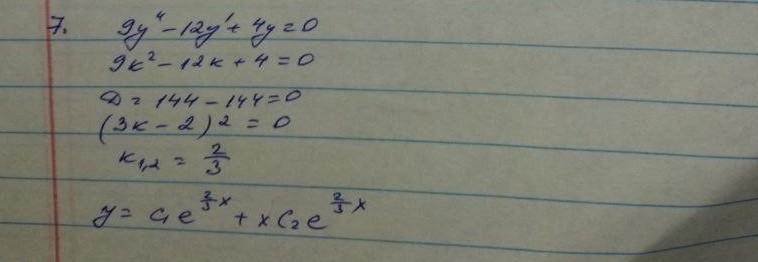 7. 9y'' - 12y' + 4y = 0
9k² - 12k + 4 = 0
D = 144 - 144 = 0
(3k - 2)² = 0
k₁,₂ = 2/3
y = C₁e^(2/3 x) + xC₂e^(2/3 x)